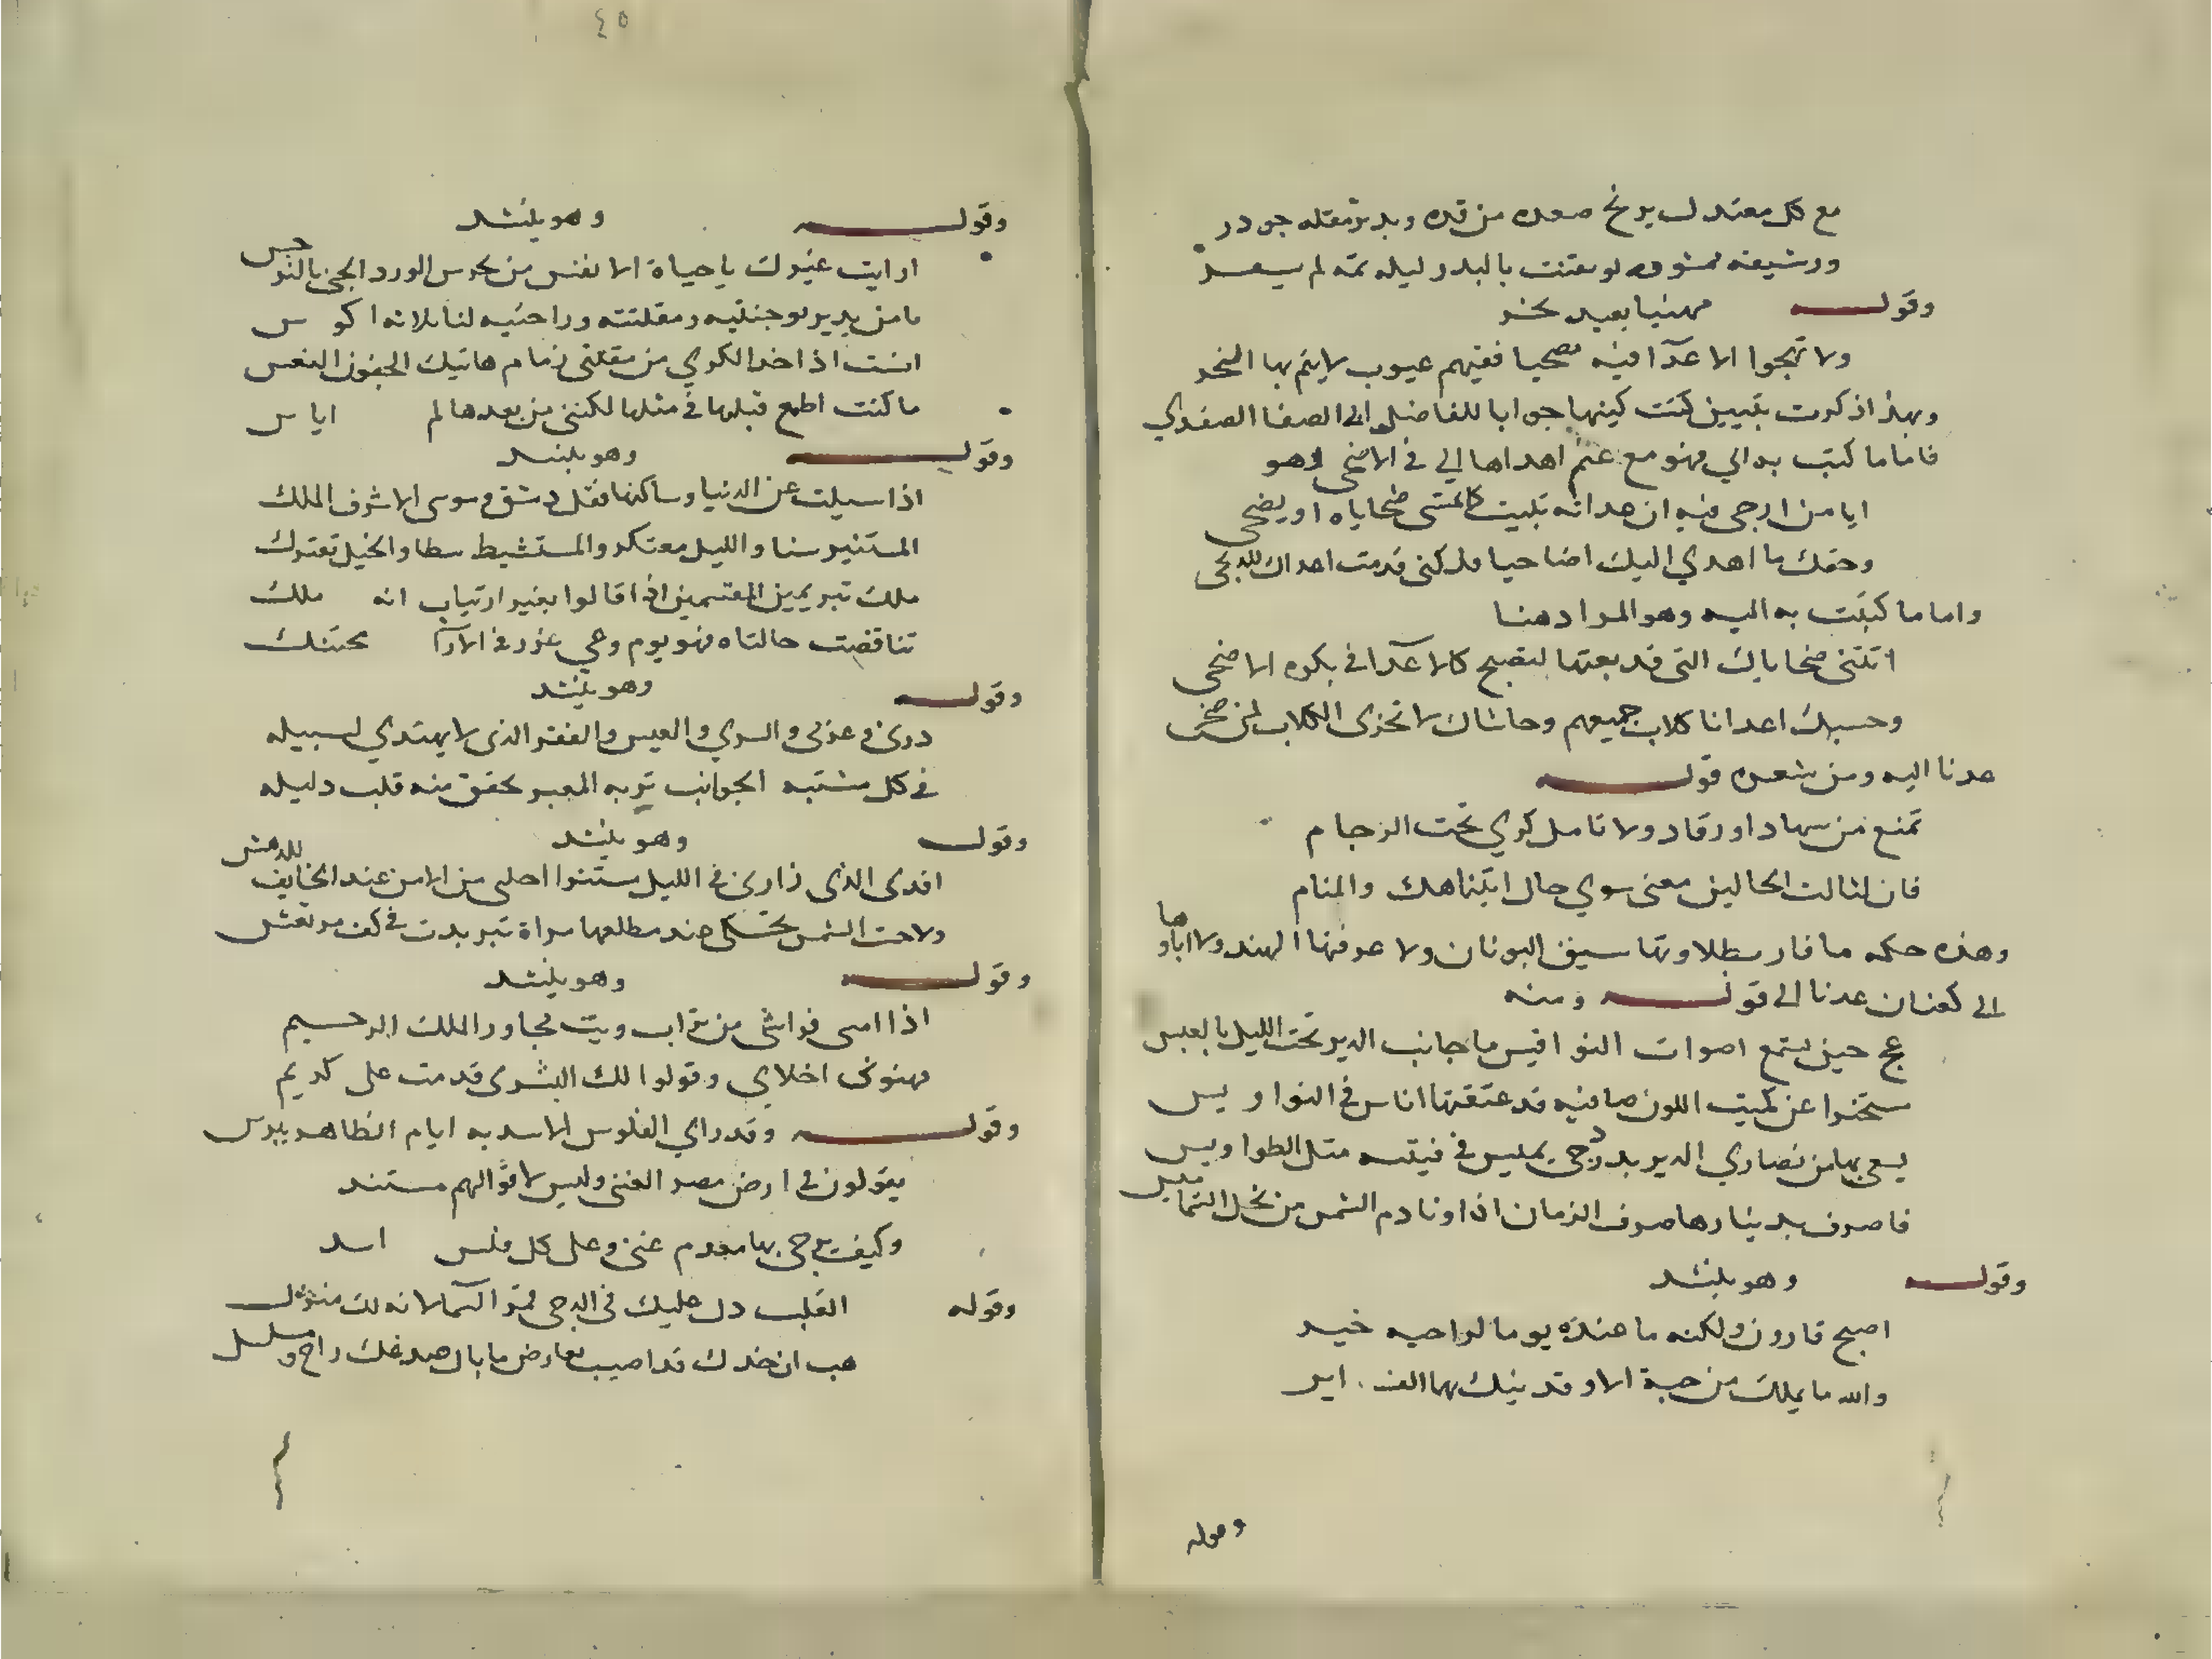 مع كل معتدل يرنح صعده من قده ويدير مقله جودر
ورشيقه لو بالبدر ليله تمه لم يسعد
وقوله مهنيا بعيد نحر
ولا تهجوا الاعدآ فيه ففيهم عيوب لا يتم بها النحر
وبهذا ذكرت بيتين كنت جوابا للفاضل الصفدي
فاما ما كتب به الي فهو مع غنم اهداها الي في الاضحى وهو
ايا من ارجى فيه ان عداته ضحاياه او يضحى
وحقك ما اهدي اليك اضاحيا ولكنى قدمت اعداك للذبحى
واما ما كتبت به اليه وهو المراد هنا
اتتنى ضحاياك التى قد بعثتها لتصبح كالاعدآ فى بكره الاضحى
وحسبك اعدانا كلاب جميعهم وحاشاك لا تجزى الكلاب لمن ضحى
عدنا اليه ومن شعره قوله
تمتع من سهاد او رقاد ولا تامل كري تحت الرجام
فان لثالث الحالين معنى سوي حال انتباهك والمنام
وهذه حكمه ما فاز بتلاوتها سيف اليونان ولا عرفتها الهند ولا اباوها
الى كنعان عدنا الى قوله ومنه
عج حين تسمع اصوات النواقيس من جانب الدير تحت الليل بالعيس
عن كميت اللون صافيه قد عتقتها اناس فى النواويس
يسعى بها من نصاري الدير بدر دجى يميس فى فتيه مثل الطواويس
فاصرف بدينارها صرف الزمان اذا ونادم الشمس من نجل الشماميس
وقوله وهو ينشد
اصبح قارون ولكنه ما عنده يوما لراجيه خير
والله ما يملك من حبة الا وقد ينيك بها الف اير
وقوله
٤٥
وقوله وهو ينشد
ارايت غيرك يا حياة الانفس من يحرس الورد الجنى بالنرجس
يا من يدير بوجنتيه ومقلته وراحتيه لنا ثلاثه اكوس
انست اذ اخذ الكري من مقلتى زمام هاتيك الجفون النعس
ما كنت اطمع قبلها فى مثلها لكننى من بعدها لم اياس
وقوله وهو ينشد
اذا سيلت عن الدنيا وساكنها فقل دمشق وموسى الاشرف الملك
المستنير سنا والليل معتكر والمستشيط سطا والخيل تعترك
ملك تبر يمين المقسمين اذا قالوا بغير ارتياب انه ملك
تناقضت حالتاه فهو يوم وغى غر وفى الآرآ محتنك
وقوله وهو ينشد
درى فى عزلى والسري والعيس والقفر الذى لا يهتدي لسبيله
فى كل مشتبه الجوانب تربه المغبر يخفق منه قلب دليله
وقوله وهو ينشد
افدى الذى زارنى فى الليل مستترا احلى من الامن عند الخايف الدهش
ولاحت الشمس تحكى عند مطلعها مراة تبر بدت فى كف مرتعش
وقوله وهو ينشد
اذا امسى فراشى من تراب وبت مجاور الملك الرحيم
فهنونى اخلاي وقولوا لك البشرى قدمت على كريم
وقوله وقد راي الفلوس الاسديه ايام الظاهر بيبرس
يقولون فى ارض مصر الغنى وليس لاقوالهم مستند
وكيف يرجى بها معدم غنى وعلى كل فلس اسد
وقوله القلب دل عليك فى الدجى قمر السما لانه لك منزل
هب ان خدك قد اصيب بعارض ما بال صدغك راح وهو مسلسل